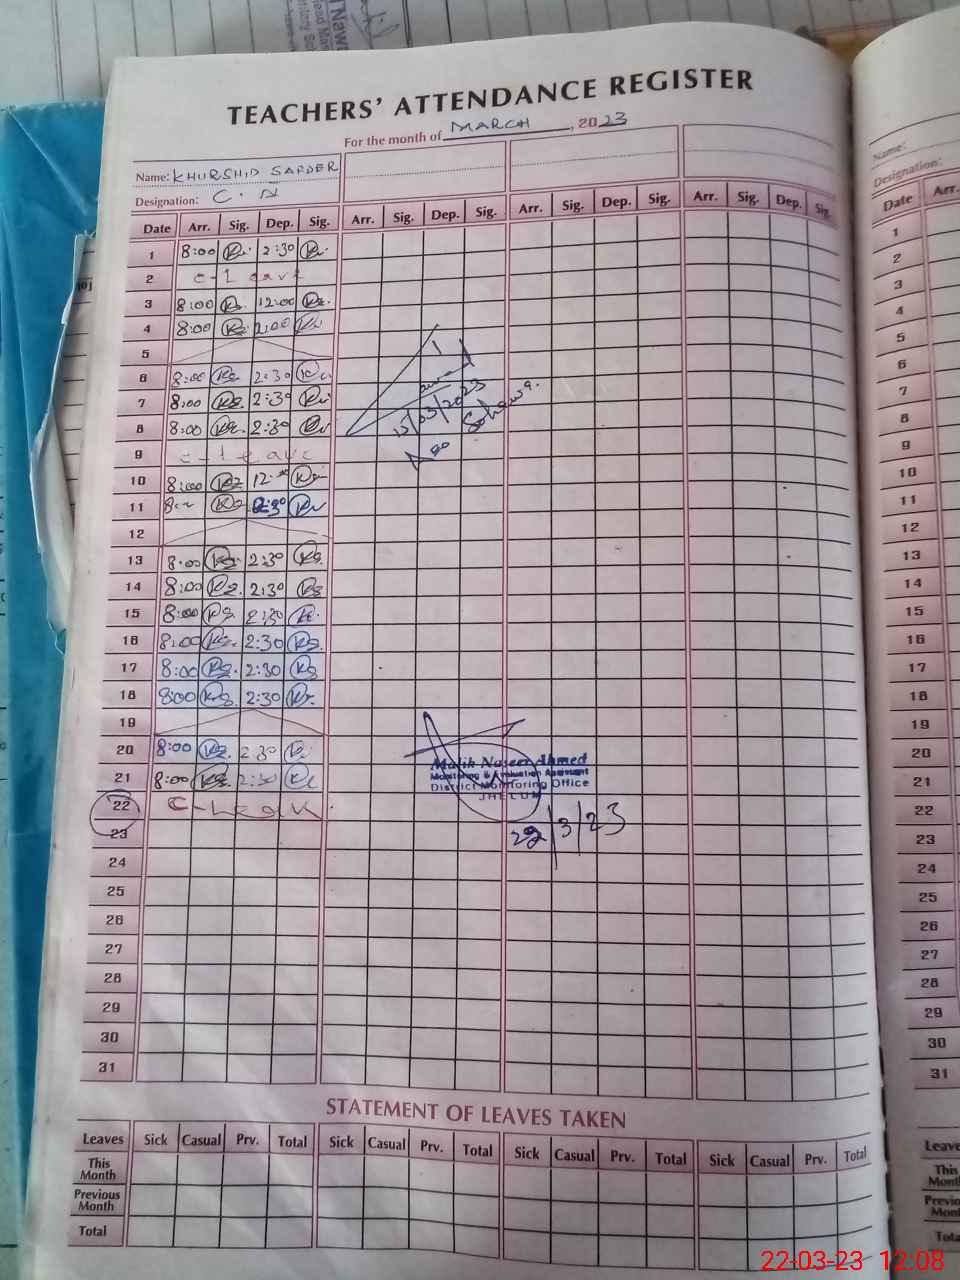 TEACHERS' ATTENDANCE REGISTER
For the month of MARCH, 2023
Name: KHURSHID SAFDER
Designation: C.
Date Arr. Sig. Dep. Sig. Arr. Sig. Dep. Sig. Arr. Sig. Dep. Sig. Arr. Sig. Dep. Sig.
1 8:00 2:30
2 c-leave
3 8:00 12:00
4 8:00 2:00
5
6 8:00 2:30
7 8:00 2:30
8 8:00 2:30
9 c-leave
10 8:00 12:00
11 2:30
12
13 8:00 2:30
14 8:00 2:30
15 8:00 2:30
16 8:00 2:30
17 8:00 2:30
18 8:00 2:30
19
20 8:00 2:30
21 8:00 2:30
22 C-Leave
23
24
25
26
27
28
29
30
31
15/03/2023
Malik Naseer Ahmed
Monitoring & Evaluation Assistant
District Monitoring Office
JHELUM
22/3/23
STATEMENT OF LEAVES TAKEN
Leaves Sick Casual Prv. Total Sick Casual Prv. Total Sick Casual Prv. Total Sick Casual Prv. Total
This Month
Previous Month
Total
Name:
Designation:
Date Arr.
1
2
3
4
5
6
7
8
9
10
11
12
13
14
15
16
17
18
19
20
21
22
23
24
25
26
27
28
29
30
31
22-03-23 12:08